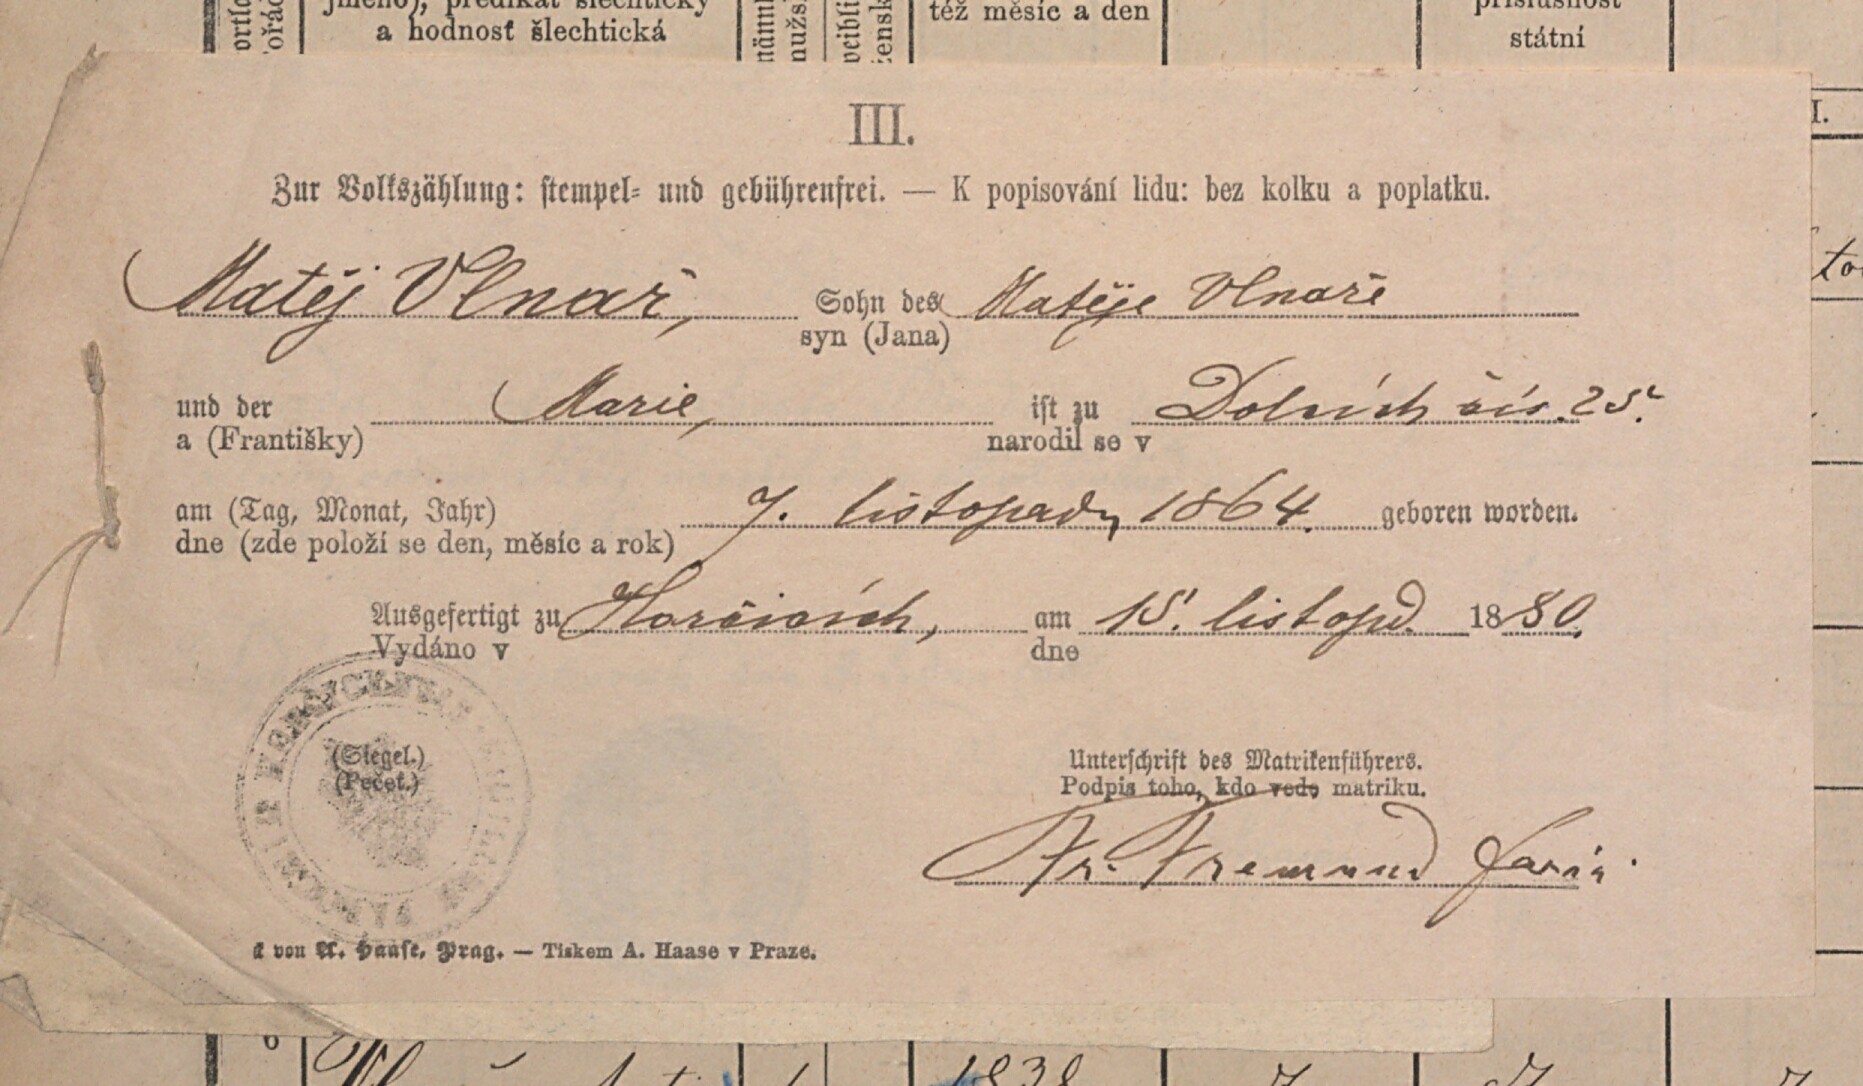 jméno), predikát šlechtický
a hodnosť šlechtická
též měsíc a den
příslušnost
státní
III.
Zur Volkszählung: stempel- und gebührenfrei. — K popisování lidu: bez kolku a poplatku.
Matěj Vlnař, Sohn des Matěje Vlnaře
syn (Jana)
und der Marie, ist zu Dolních čís. 25.
a (Františky) narodil se v
am (Tag, Monat, Jahr) 7. listopadu 1864. geboren worden.
dne (zde položí se den, měsíc a rok)
Ausgefertigt zu Horčicích, am 15. listopd. 1880.
Vydáno v dne
(Siegel.)
(Pečeť.)
Unterschrift des Matrikenführers.
Podpis toho, kdo vede matriku.
Fr. Fremund farář.
von A. Haase, Prag. — Tiskem A. Haase v Praze.
6
1838